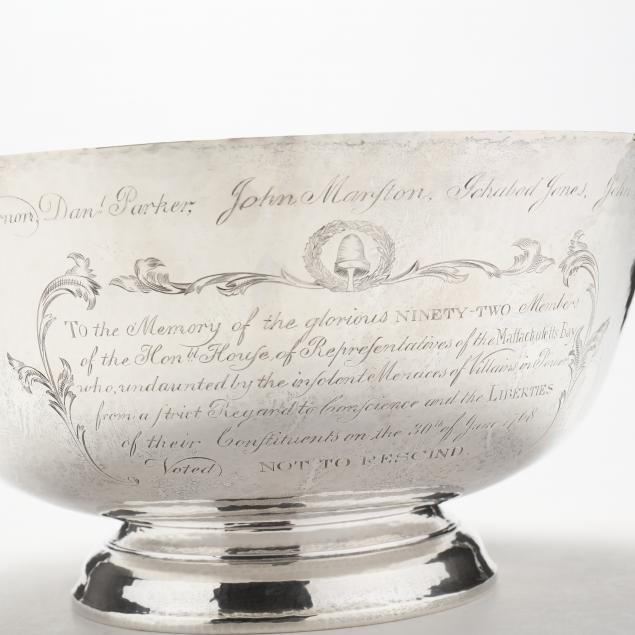 non, Danl. Parker, John Marston, Ichabod Jones, John
To the Memory of the glorious NINETY-TWO Members
of the Honbl. House of Representatives of the Massachusetts-Bay
who, undaunted by the insolent Menaces of Villains in Power
from a strict Regard to Conscience and the LIBERTIES
of their Constituents on the 30th of June 1768
Voted NOT TO RESCIND.